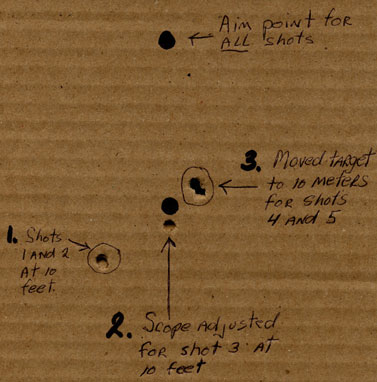 Aim point for
ALL shots
3. Moved target
to 10 meters
for shots
4 and 5
1. Shots
1 and 2
at 10
feet.
2. Scope adjusted
for shot 3 at
10 feet